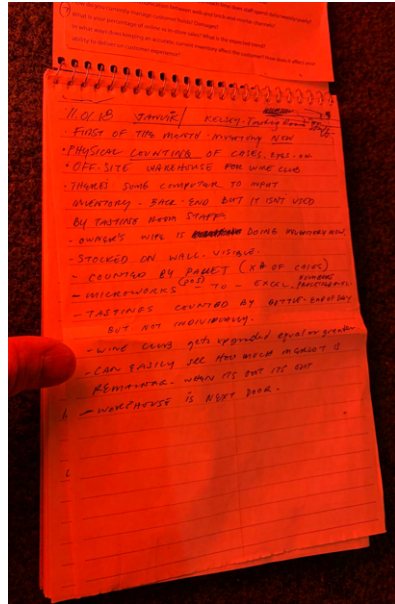 do you currently manage customer holds? Damages?
What is your percentage of online vs in-store sales? What is the expected trend?
In what ways does keeping an accurate, current inventory affect the customer? How does it affect your
ability to deliver on customer experience?
11.01.18 / KELSEY - Tasting Room Staff
· FIRST OF THE MONTH - INVENTORY NOW
· PHYSICAL COUNTING OF CASES. EYES-ON
· OFF-SITE WAREHOUSE FOR WINE CLUB
· THERES SOME COMPUTER TO INPUT
INVENTORY - BACK-END BUT IT ISNT USED
BY TASTING ROOM STAFF
- OWNER'S WIFE IS DOING INVENTORY NOW.
- STOCKED ON WALL. VISIBLE.
- COUNTED BY PALLET (X # OF CASES)
- MICROWORKS (POS) - TO - EXCEL.
- TASTINGS COUNTED BY BOTTLE - END OF DAY
BUT NOT INDIVIDUALLY.
- WINE CLUB gets upgraded equal or greater
- CAN EASILY see HOW MUCH MERLOT IS
REMAINER. WHEN ITS OUT ITS OUT
- WAREHOUSE IS NEXT DOOR.